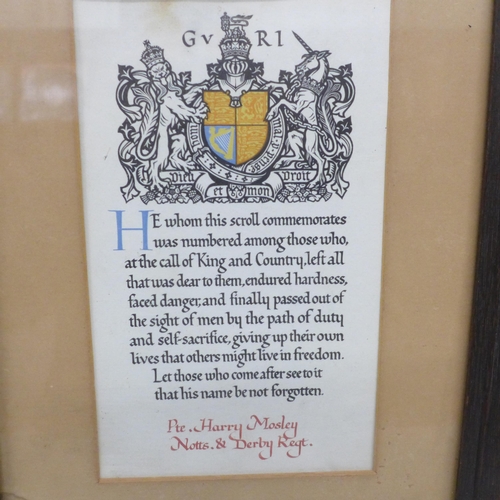 GVRI
Dieu et mon Droit
HE whom this scroll commemorates
was numbered among those who,
at the call of King and Country, left all
that was dear to them, endured hardness,
faced danger, and finally passed out of
the sight of men by the path of duty
and self-sacrifice, giving up their own
lives that others might live in freedom.
Let those who come after see to it
that his name be not forgotten.
Pte. Harry Mosley
Notts. & Derby Regt.